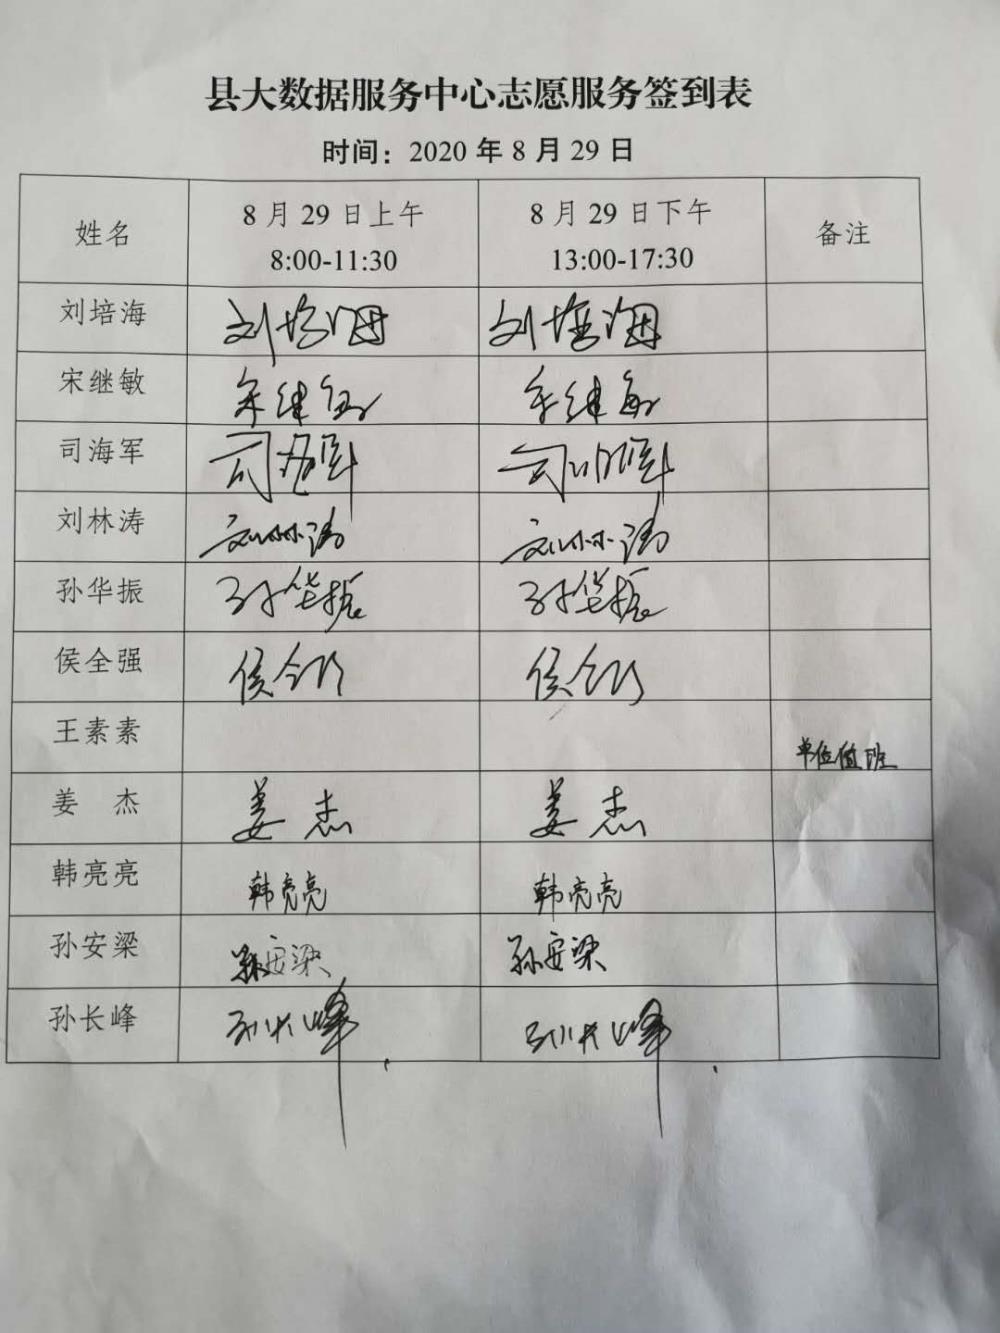 县大数据服务中心志愿服务签到表
时间：2020年8月29日
姓名
8月29日上午
8:00-11:30
8月29日下午
13:00-17:30
备注
刘培海 刘培海 刘培海
宋继敏 宋继敏 宋继敏
司海军 司海军 司海军
刘林涛 刘林涛 刘林涛
孙华振 孙华振 孙华振
侯全强 侯全强 侯全强
王素素 单位值班
姜 杰 姜杰 姜杰
韩亮亮 韩亮亮 韩亮亮
孙安梁 孙安梁 孙安梁
孙长峰 孙长峰 孙长峰